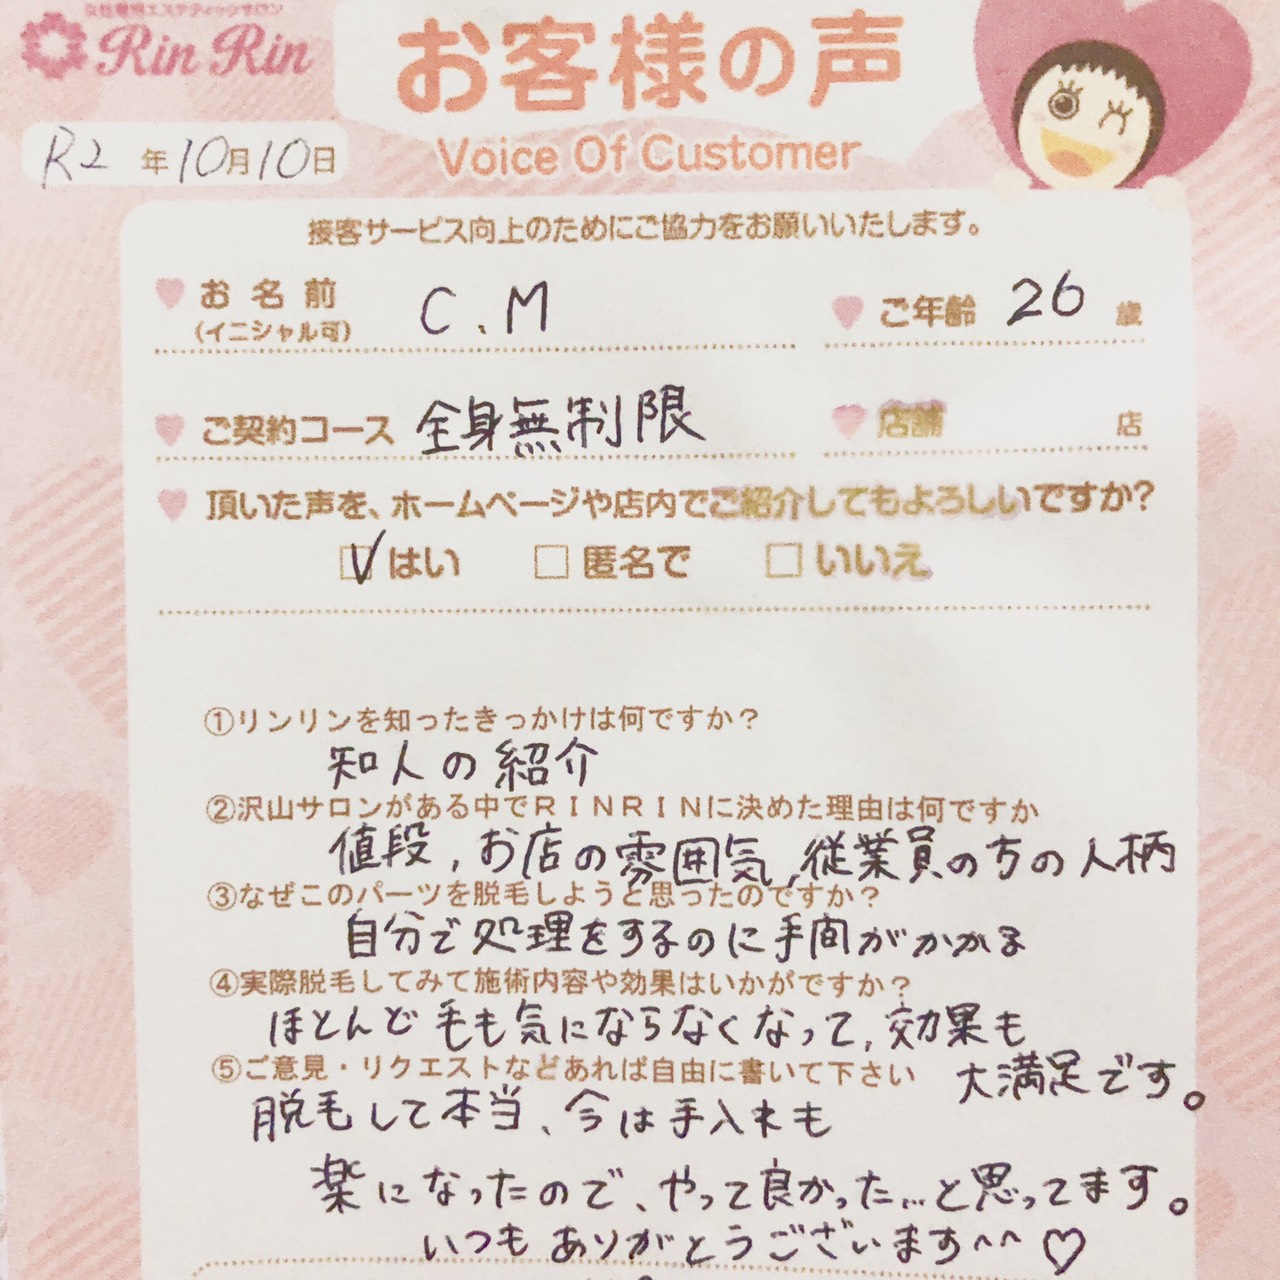 女性専用エステティックサロン
Rin Rin
お客様の声
Voice Of Customer
R2年10月10日
接客サービス向上のためにご協力をお願いいたします。
お名前 C.M ご年齢 26 歳
(イニシャル可)
ご契約コース 全身無制限 店舗 店
頂いた声を、ホームページや店内でご紹介してもよろしいですか?
はい 匿名で いいえ
①リンリンを知ったきっかけは何ですか?
知人の紹介
②沢山サロンがある中でRINRINに決めた理由は何ですか
値段,お店の雰囲気,従業員の方の人柄
③なぜこのパーツを脱毛しようと思ったのですか?
自分で処理をするのに手間がかかる
④実際脱毛してみて施術内容や効果はいかがですか?
ほとんど毛も気にならなくなって,効果も
大満足です。
⑤ご意見・リクエストなどあれば自由に書いて下さい
脱毛して本当、今は手入れも
楽になったので、やって良かった…と思ってます。
いつもありがとうございます^^♡